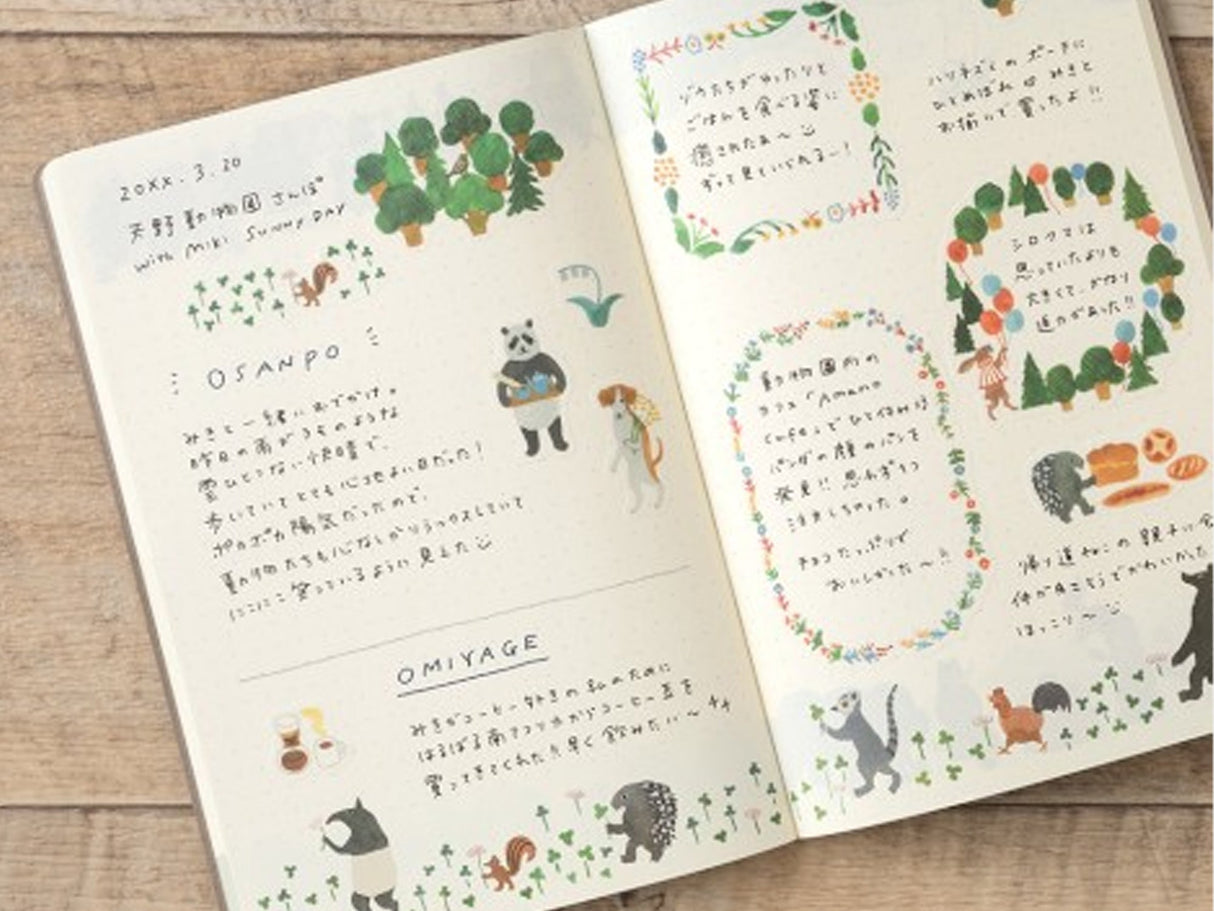 20XX.3.20
天野動物園さんぽ
with MIKI SUNNY DAY
OSANPO
みきと一緒におでかけ。
昨日の雨がうそのような
雲ひとつない快晴で、
歩いていてとても心地よい日だった!
ポカポカ陽気だったので、
動物たちも心なしかリラックスしていて
にこにこ笑っているように見えた
OMIYAGE
みきがコーヒー好きの私のために
はるばる南アフリカからコーヒー豆を
買ってきてくれた!!早く飲みたい〜
ゾウたちがゆったりと
ごはんを食べる姿に
癒されたぁ〜
ずっと見ていられるー!
ハリネズミのポーチに
ひとめぼれ みきと
お揃いで買ったよ!!
シロクマは
思っていたよりも
大きくて、かなり
迫力があった!!
動物園内の
カフェ「Amano
Cafe」でひと休み
パンダの顔のパンを
発見!! 思わず
注文しちゃった。
チョコたっぷりで
おいしかった〜!!
帰り道ねこの親子に会
仲が良さそうでかわいかった
ほっこり〜